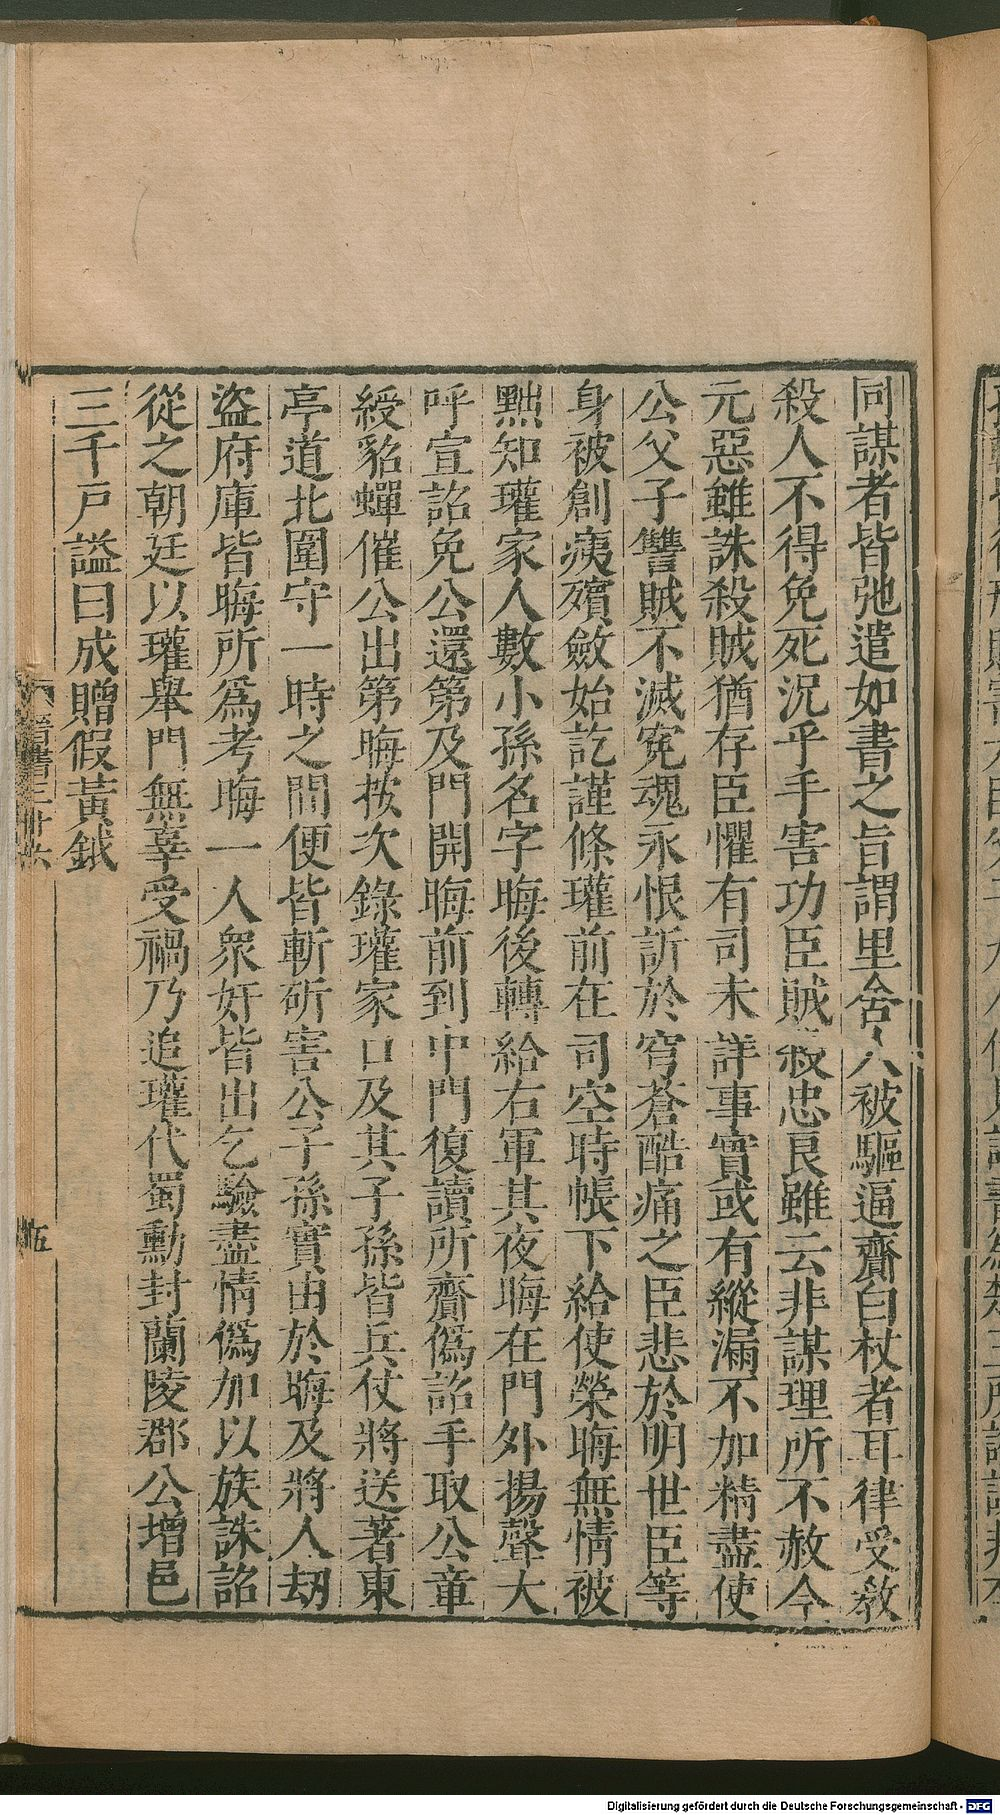 同謀者皆弛遣如書之旨謂里舍人被驅逼齎白杖者耳律受敎
殺人不得免死況乎手害功臣賊殺忠良雖云非謀理所不赦今
元惡雖誅殺賊猶存臣懼有司未詳事實或有縱漏不加精盡使
公父子讐賊不滅寃魂永恨訢於穹蒼酷痛之臣悲於明世臣等
身被創痍殯斂始訖謹條瓘前在司空時帳下給使榮晦無情被
黜知瓘家人數小孫名字晦後轉給右軍其夜晦在門外揚聲大
呼宣詔免公還第及門開晦前到中門復讀所齎僞詔手取公章
綬貂蟬催公出第晦按次錄瓘家口及其子孫皆兵仗將送著東
亭道北圍守一時之間便皆斬斫害公子孫實由於晦及將人劫
盜府庫皆晦所爲考晦一人衆奸皆出乞驗盡情僞加以族誅詔
從之朝廷以瓘舉門無辜受禍乃追瓘代蜀勳封蘭陵郡公增邑
三千戸謚曰成贈假黃鉞
晉書三十六
五
Digitalisierung gefördert durch die Deutsche Forschungsgemeinschaft - DFG